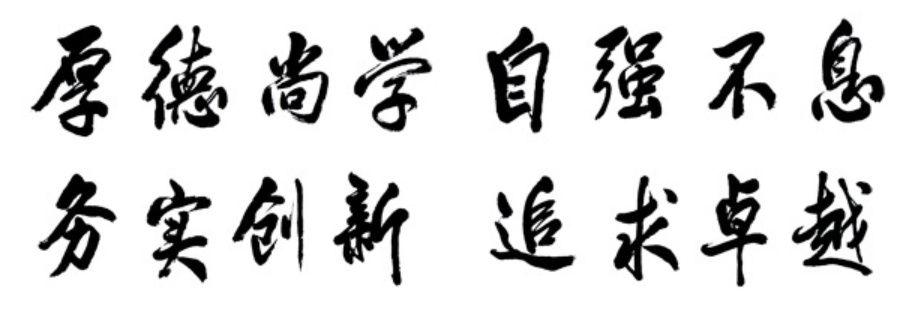 厚德尚学 自强不息
务实创新 追求卓越